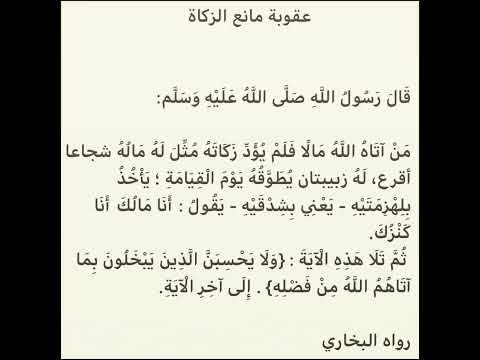 عقوبة مانع الزكاة
قَالَ رَسُولُ اللَّهِ صَلَّى اللَّهُ عَلَيْهِ وَسَلَّم:
مَنْ آتَاهُ اللَّهُ مَالًا فَلَمْ يُؤَدِّ زَكَاتَهُ مُثِّلَ لَهُ مَالُهُ شجاعا
أقرع، لَهُ زبيبتان يُطَوَّقُهُ يَوْمَ الْقِيَامَةِ ؛ يَأْخُذُ
بِلِهْزِمَتَيْهِ - يَعْنِي بِشِدْقَيْهِ - يَقُولُ : أَنَا مَالُكَ أَنَا
كَنْزُكَ.
ثُمَّ تَلَا هَذِهِ الْآيَةَ : {وَلَا يَحْسِبَنَّ الَّذِينَ يَبْخَلُونَ بِمَا
آتَاهُمُ اللَّهُ مِنْ فَضْلِهِ} . إِلَى آخِرِ الْآيَةِ.
رواه البخاري